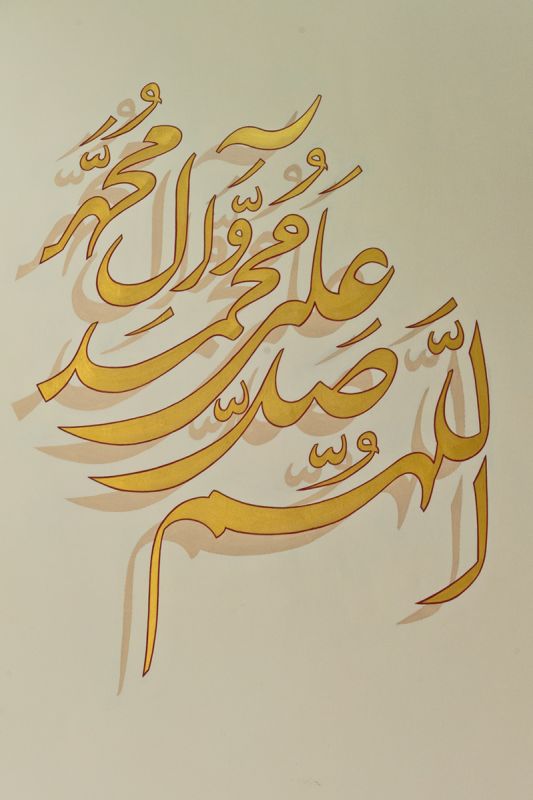 اللّٰهُمَّ
صَلِّ
عَلىٰ مُحَمَّدٍ
وَّآلِ مُحَمَّد